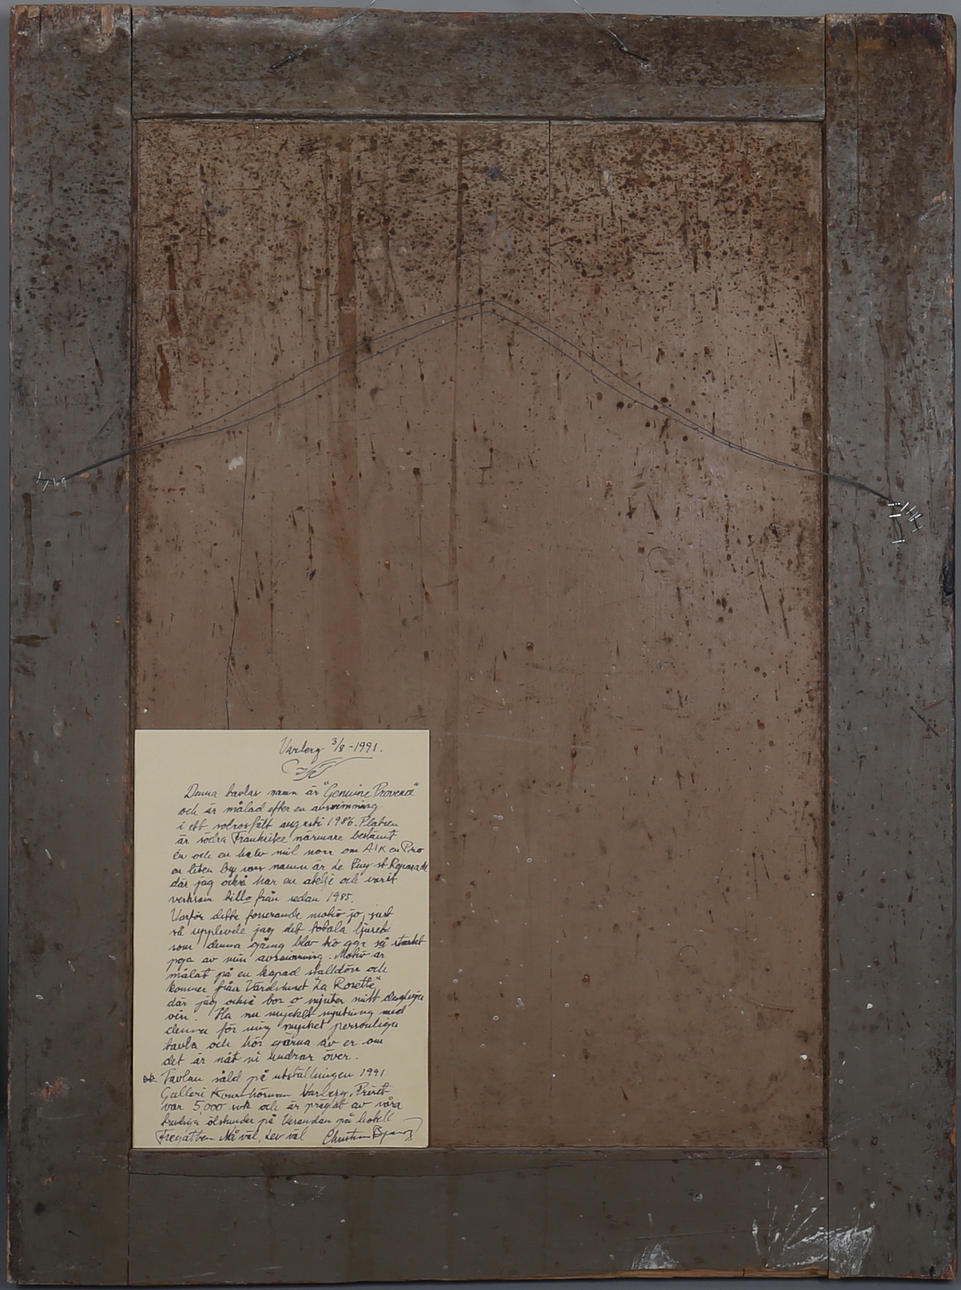 Varberg 3/8-1991.
Denna tavlas namn är "Genuine Provence"
och är målad efter en avsvimning
i ett solrosfält augusti 1986. Platsen
är södra Frankrike närmare bestämt
en och en halv mil norr om AIX en Pro
en liten by vars namn är Le Puy st. Reparade
där jag också har en ateljé och varit
verksam tills från sedan 1985.
Varför detta motiv jo, just
så upplevde jag det totala ljuset
som denna gång blev tio ggr så starkt
pga av min avsvimning. Motiv är
målat på en kapad stalldörr och
kommer från Värdshuset "La Rosette",
där jag också bor o njuter mitt dagliga
vin. Ha nu mycket njutning med
denna för mig mycket personliga
tavla och hör gärna av er om
det är nåt ni undrar över.
Tavlan såld på utställningen 1991
Galleri Konsthörnan Varberg. Priset
var 5.000 och är präglat av våra
härliga ölstunder på Verandan på hotell
Fregatten Må väl, Lev väl Christian